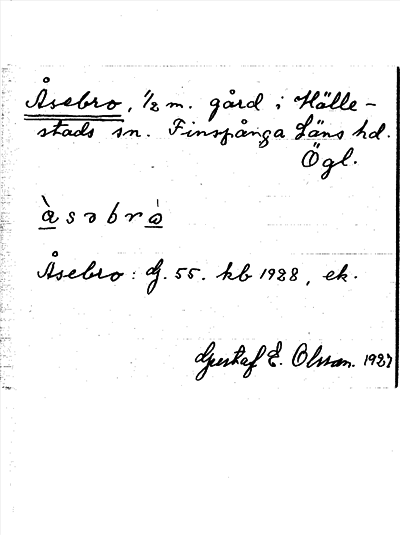 Åsebro, 1/2 m. gård i Hälle-
stads sn. Finspånga Läns hd.
Ögl.
å̀ s ə b r ò
Åsebro: G. 55. kb 1928, ek.
Gustaf E. Olsson. 1927